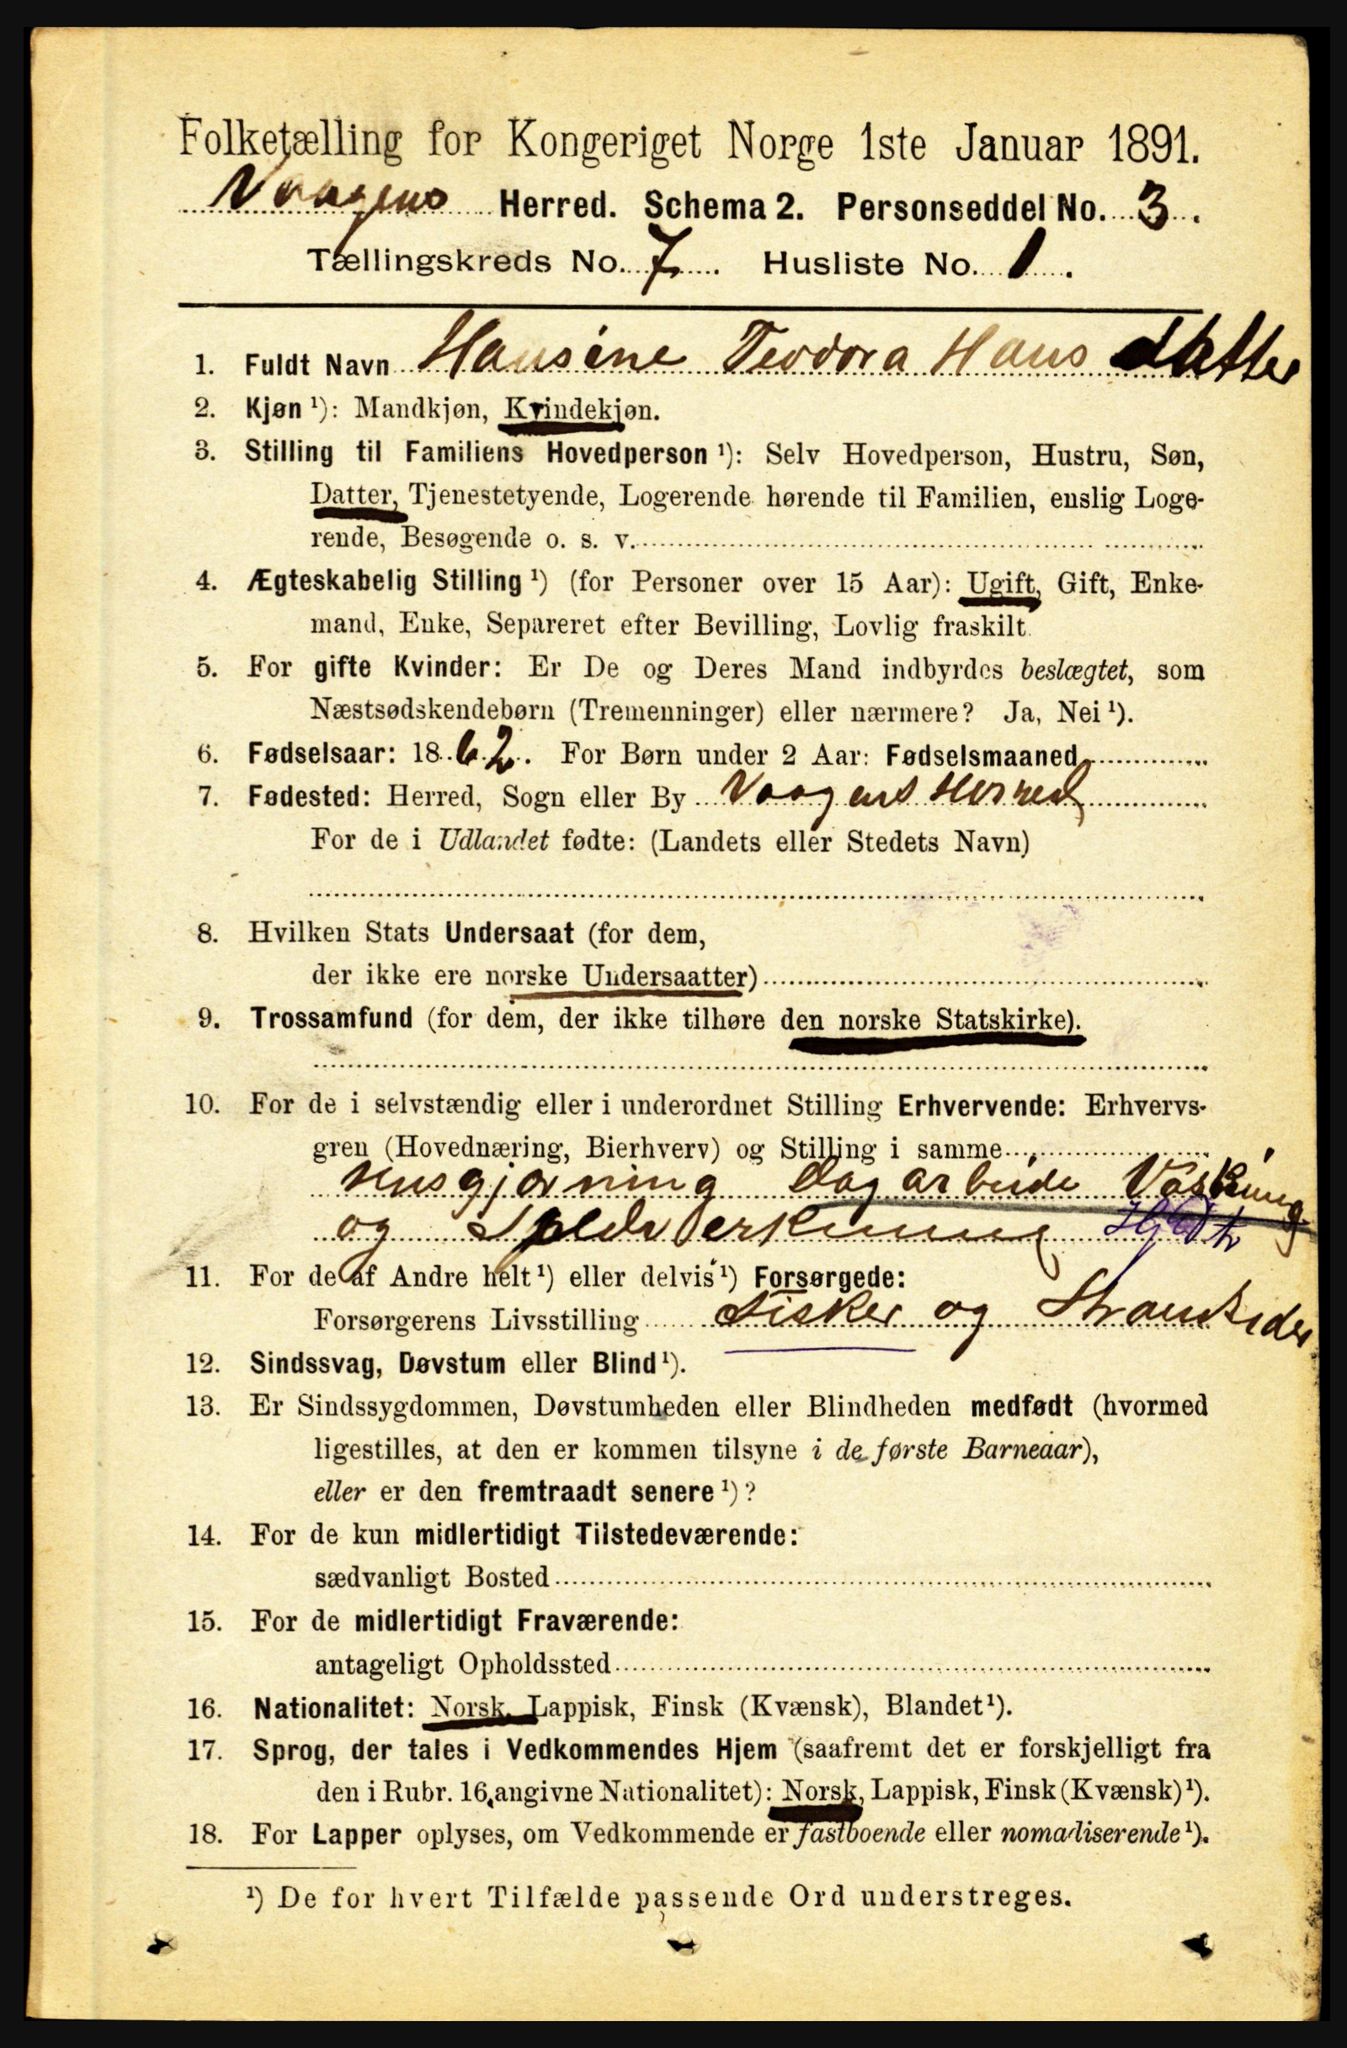 Folketælling for Kongeriget Norge 1ste Januar 1891.
Vaagens Herred. Schema 2. Personseddel No. 3.
Tællingskreds No. 7. Husliste No. 1.
1. Fuldt Navn Hansine Teodora Hans datter
2. Kjøn ¹): Mandkjøn, Kvindekjøn.
3. Stilling til Familiens Hovedperson ¹): Selv Hovedperson, Hustru, Søn,
Datter, Tjenestetyende, Logerende hørende til Familien, enslig Loge-
rende, Besøgende o. s. v.
4. Ægteskabelig Stilling ¹) (for Personer over 15 Aar): Ugift, Gift, Enke-
mand, Enke, Separeret efter Bevilling, Lovlig fraskilt.
5. For gifte Kvinder: Er De og Deres Mand indbyrdes beslægtet, som
Næstsødskendebørn (Tremenninger) eller nærmere? Ja, Nei ¹).
6. Fødselsaar: 1862. For Børn under 2 Aar: Fødselsmaaned
7. Fødested: Herred, Sogn eller By Vaagens Herred
For de i Udlandet fødte: (Landets eller Stedets Navn)
8. Hvilken Stats Undersaat (for dem,
der ikke ere norske Undersaatter)
9. Trossamfund (for dem, der ikke tilhøre den norske Statskirke).
10. For de i selvstændig eller i underordnet Stilling Erhvervende: Erhvervs-
gren (Hovednæring, Bierhverv) og Stilling i samme
Husgjerning Dagarbeide Vasking
og
11. For de af Andre helt ¹) eller delvis ¹) Forsørgede:
Forsørgerens Livsstilling Fisker og Strandsider
12. Sindssvag, Døvstum eller Blind ¹).
13. Er Sindssygdommen, Døvstumheden eller Blindheden medfødt (hvormed
ligestilles, at den er kommen tilsyne i de første Barneaar),
eller er den fremtraadt senere ¹)?
14. For de kun midlertidigt Tilstedeværende:
sædvanligt Bosted
15. For de midlertidigt Fraværende:
antageligt Opholdssted
16. Nationalitet: Norsk, Lappisk, Finsk (Kvænsk), Blandet ¹).
17. Sprog, der tales i Vedkommendes Hjem (saafremt det er forskjelligt fra
den i Rubr. 16 angivne Nationalitet): Norsk, Lappisk, Finsk (Kvænsk) ¹).
18. For Lapper oplyses, om Vedkommende er fastboende eller nomadiserende ¹).
¹) De for hvert Tilfælde passende Ord understreges.